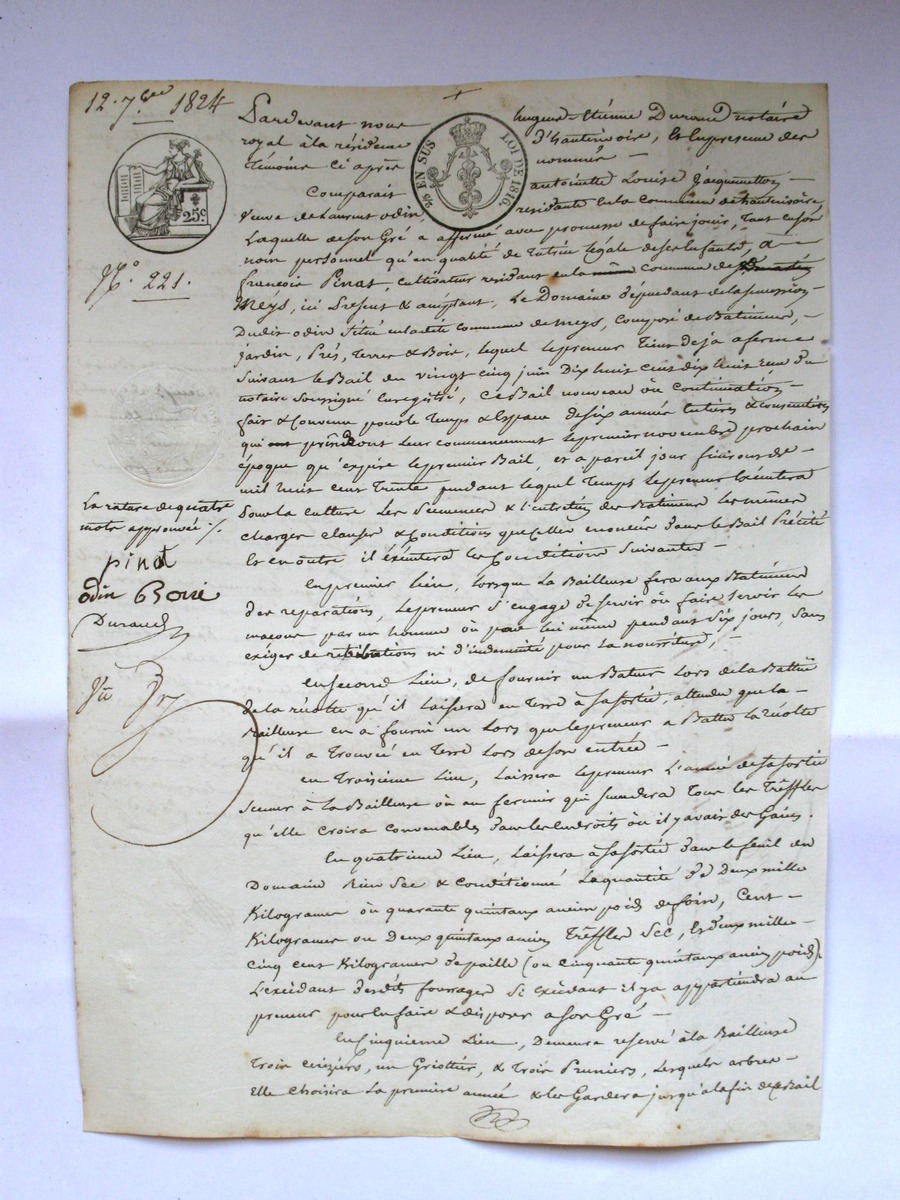 12. 7bre 1824
25c
2/5 EN SUS
LOI DE 1816.
N° 221.
Pardevant nous hugues Etiénne Durand notaire
royal à la résidence d'hauterivoire, et En présence des
témoins ci après nommés —
Comparait antoinette Louise Jacquemetton
Veuve de Laurent odin, residante En la commune de hauterivoire,
Laquelle de son Gré a affermé avec promesse de faire jouir, tant En son
nom personnel qu'en qualité de tutrice légale de ses Enfants, à —
françois Pinat, cultivateur residant en la commune de
Meys, ici Présent & acceptant, Le Domaine dépendant de la succession
Dudit odin situé en ladite commune de meys, composé de Batiments, —
jardin, Prés, terres & Bois, lequel le preneur tient déja a ferme
suivant le Bail du vingt cinq juin Dix huit cent dix huit reçu du
notaire soussigné Enregistré, ce Bail nouveau où continuation —
fait & convenu pour le temps & Espace de six années Entières & consecutives
qui prendront leur commencement le premier novembre prochain
époque qu'expire le premier Bail, et a pareil jour finiront de —
mil huit cent trente pendant lequel temps le preneur Exécutera
pour la culture Les semences & l'entretien des Batiments les mêmes
charges clauses & Conditions que celles enoncées dans le Bail Précité
Et en outre il éxécutera les Conditions suivantes —
En premier lieu, lorsque la Bailleuse fera aux Batiments
des reparations, le preneur s'engage de servir où faire servir les
macons par un homme où par lui même pendant six jours, sans
exiger de retributions ni d'indemnité pour la nourriture, —
En second Lieu, de fournir un Bateur Lors de la Battue
de la récolte qu'il laissera en terre à sa sortie, attendu que la —
Bailleuse en a fourni un Lors que le preneur a Battu la récolte
qu'il a trouvée en terre Lors de son entrée —
en troisieme Lieu, laissera le preneur L'année de sa sortie
semer à la Bailleuse où au fermier qui succedera tous les trèffles
qu'elle croira convenables dans les Endroits où il y avait des Gains.
En quatrieme Lieu, laissera à sa sortie dans le fenil du
Domaine Bien sec & conditionné La quantité de Deux mille
Kilogrames où quarante quintaux ancien poids de foin, Cent —
Kilogrames ou Deux quintaux ancien trèffles sec, et deux mille
cinq cent Kilogrames de paille (ou cinquante quintaux ancien poids).
L'excédant desdits fourrages si excédant il y a appartiendra au
preneur pour En faire & disposer a son Gré —
En Cinquieme Lieu, Demeura reservé à la Bailleuse
trois ceriziers, un Griottier, & trois Pruniers, lesquels arbres —
Elle choisira La premiere année & les Gardera jusqu'à la fin de ce Bail
La rature de quatre
mots approuvée ./.
pinat
odin
Durand
Vu